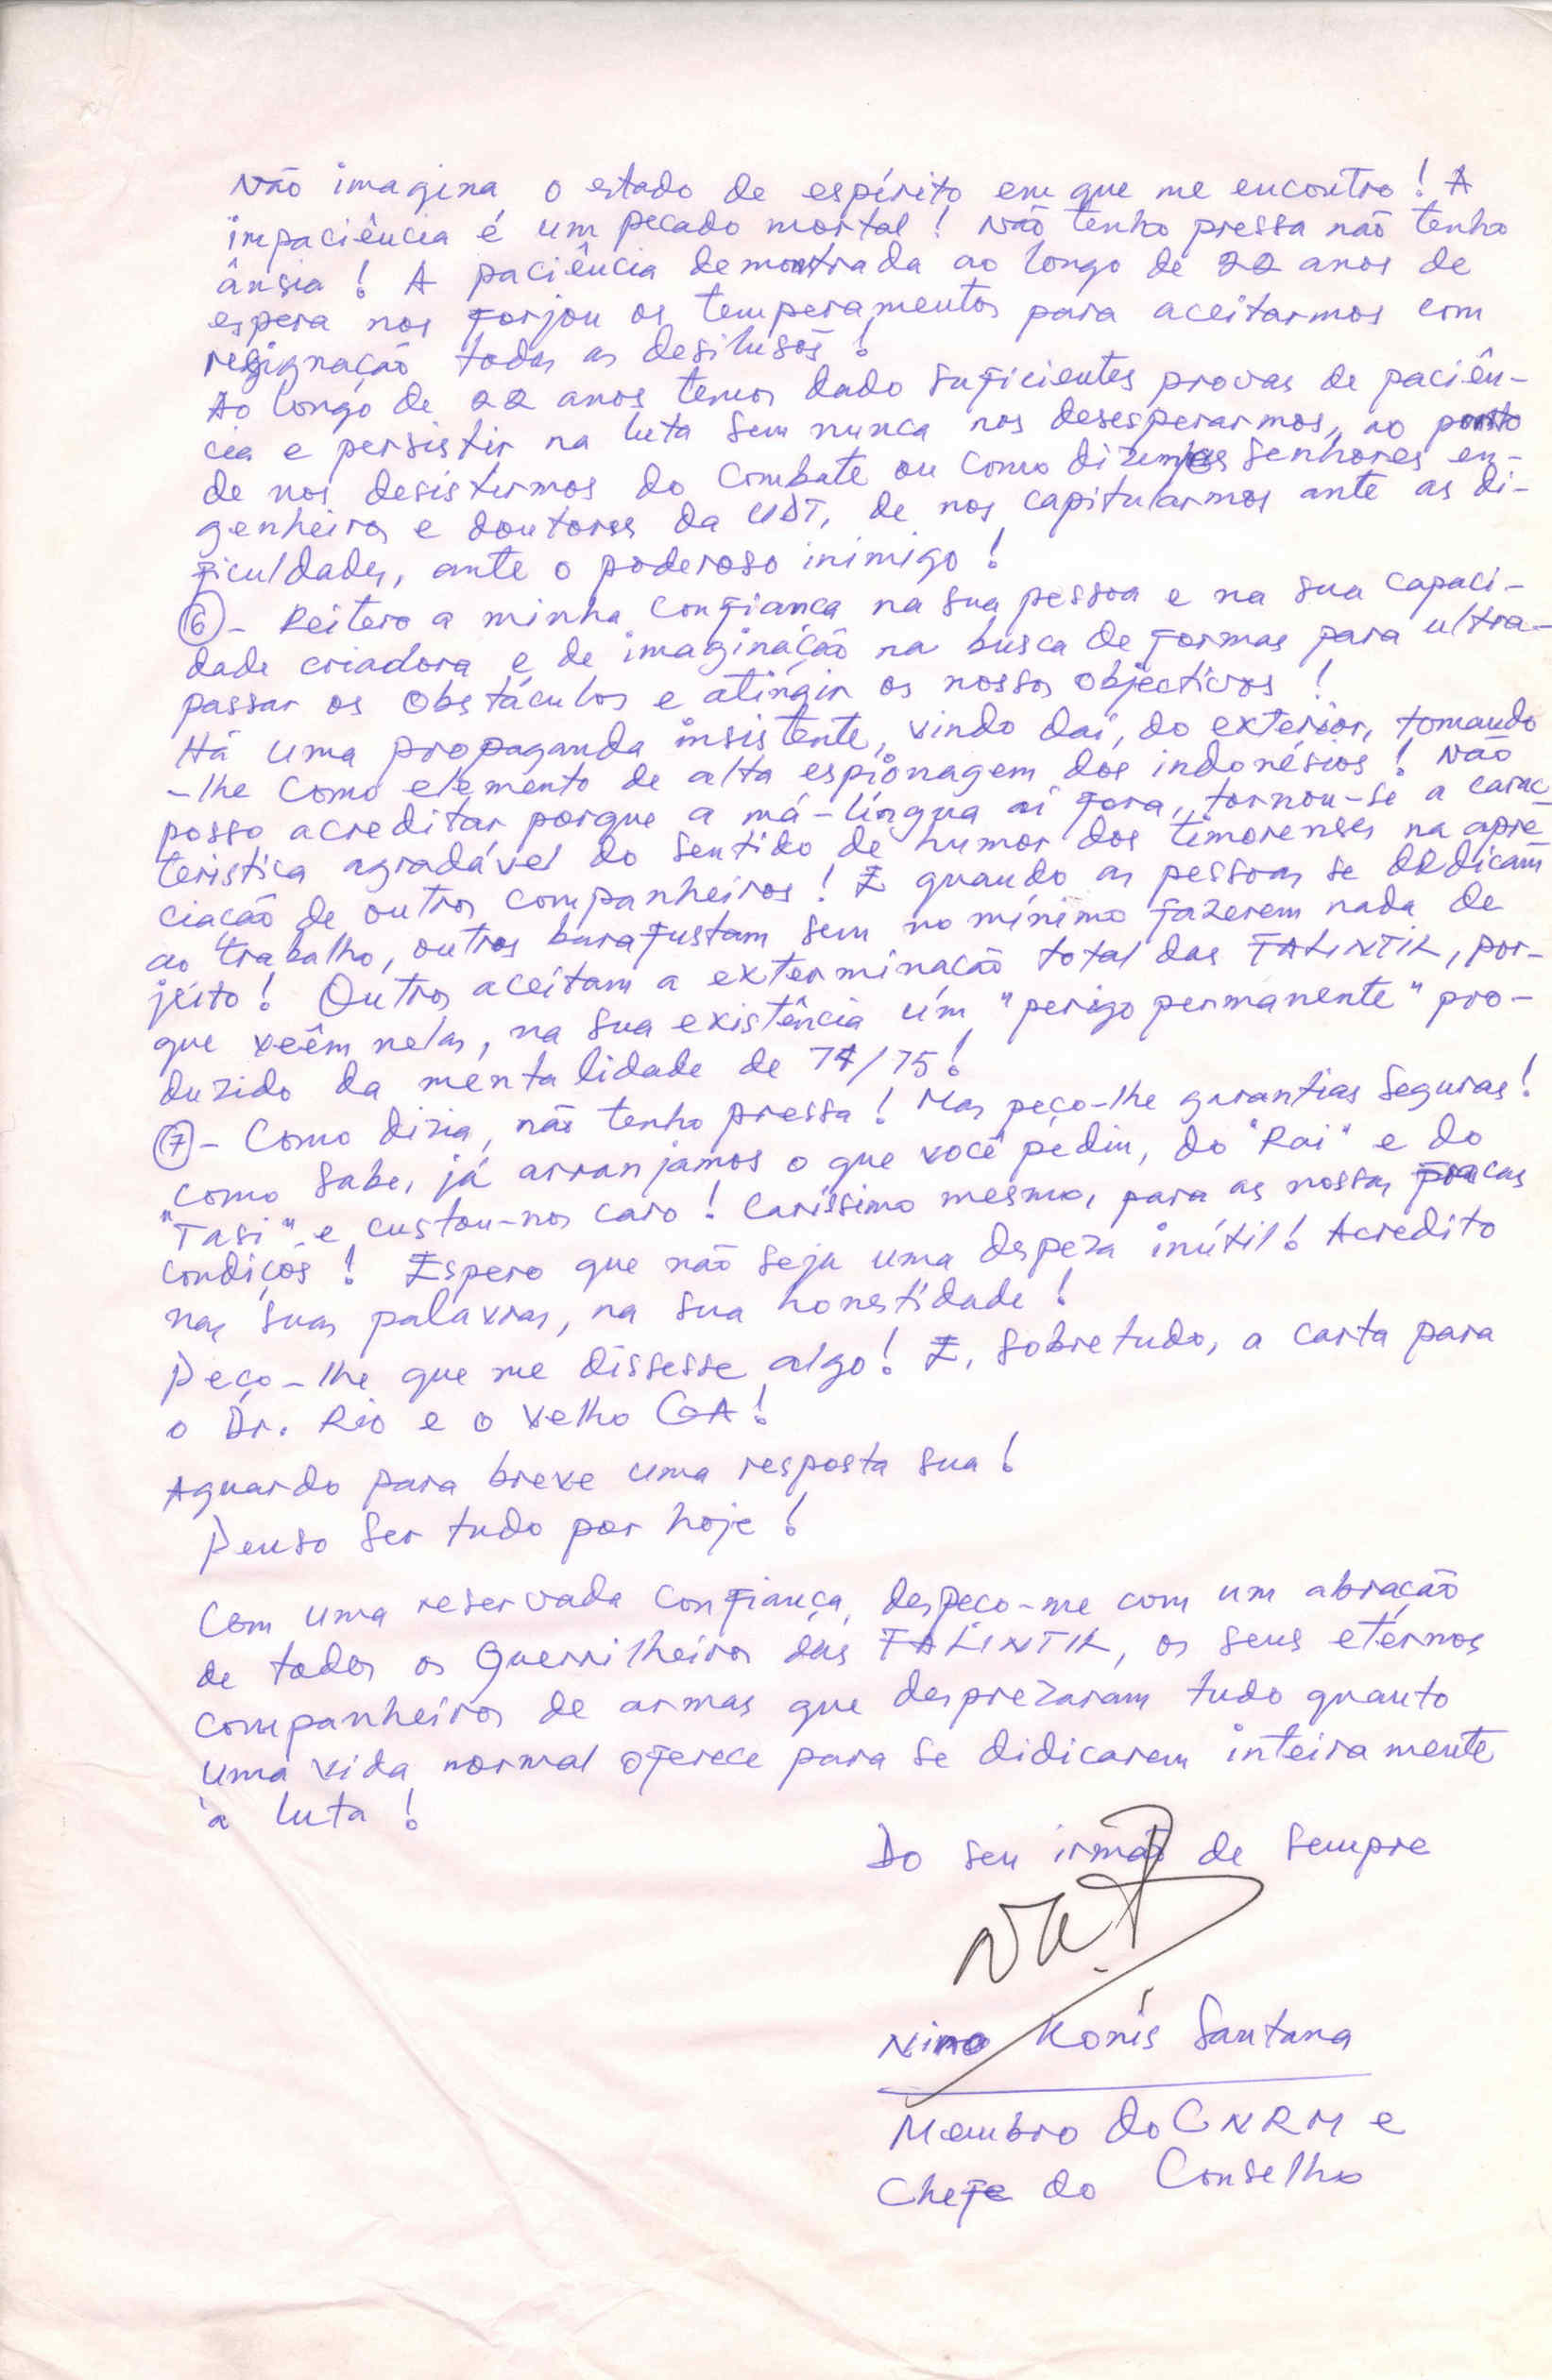 Não imagina o estado de espírito em que me encontro! A
impaciência é um pecado mortal! Não tenho pressa não tenho
ânsia! A paciência demonstrada ao longo de 22 anos de
espera nos forjou os temperamentos para aceitarmos com
resignação todas as desilusõs!
Ao longo de 22 anos temos dado suficientes provas de paciên-
cia e persistir na luta sem nunca nos desesperarmos, ao ponto
de nos desistirmos do combate ou como dizem os senhores en-
genheiros e doutores da UDT, de nos capitularmos ante as di-
ficuldades, ante o poderoso inimigo!
6 - Reitero a minha confiança na sua pessoa e na sua capaci-
dade criadora e de imaginação na busca de formas para ultra-
passar os obstáculos e atingir os nossos objectivos!
Há uma propaganda insistente, vindo daí, do exterior, tomando
-lhe como elemento de alta espionagem dos indonésios! Não
posso acreditar porque a má-língua aí fora, tornou-se a carac-
teristica agradável do sentido de humor dos timorenses na apre-
ciação de outros companheiros! E quando as pessoas se dedicam
ao trabalho, outros barafustam sem no mínimo fazerem nada de
jeito! Outros aceitam a exterminação total das FALINTIL, por-
que veêm nelas, na sua existência um "perigo permanente" pro-
duzido da mentalidade de 74/75!
7 - Como dizia, não tenho pressa! Mas peço-lhe garantias seguras!
Como sabe, já arranjamos o que você pediu, do "Rai" e do
"Tasi" e custou-nos caro! Caríssimo mesmo, para as nossas fracas
condiçõs! Espero que não seja uma despeza inútil! Acredito
nas suas palavras, na sua honestidade!
Peço-lhe que me dissesse algo! E, sobretudo, a carta para
o Dr. Rio e o Velho GA!
Aguardo para breve uma resposta sua!
Penso ser tudo por hoje!
Com uma reservada confiança, despeço-me com um abração
de todos os Guerrilheiros das FALINTIL, os seus eternos
companheiros de armas que desprezaram tudo quanto
uma vida normal oferece para se didicarem inteiramente
à luta!
Do seu irmão de sempre
Nino Konis Santana
Membro do CNRM e
Chefe do Conselho